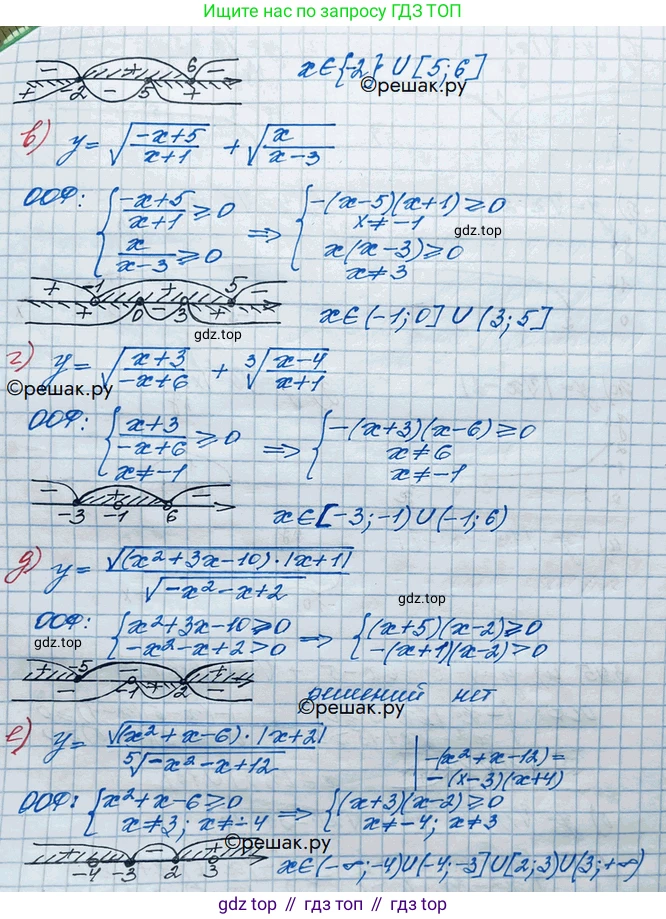 Ищите нас по запросу ГДЗ ТОП
- + 6 -
+ -2 - 5 +
x∈{-2}∪[5;6]
©решак.ру
в) y = √((-x+5)/(x+1)) + √(x/(x-3))
ООФ: { (-x+5)/(x+1) ≥ 0 ⇒ { -(x-5)(x+1) ≥ 0
x ≠ -1
gdz.top
x/(x-3) ≥ 0 x(x-3) ≥ 0
x ≠ 3
+ -1 + 5 -
+ 0 - 3 +
x∈(-1;0]∪(3;5]
gdz.top
г) y = √((x+3)/(-x+6)) + ³√((x-4)/(x+1))
©решак.ру
ООФ: { (x+3)/(-x+6) ≥ 0 ⇒ { -(x+3)(x-6) ≥ 0
x ≠ 6
x ≠ -1 x ≠ -1
- + -
-3 -1 6
x∈[-3;-1)∪(-1;6)
д) y = √((x²+3x-10)·|x+1|) / √(-x²-x+2)
gdz.top
ООФ: { x²+3x-10 ≥ 0 ⇒ { (x+5)(x-2) ≥ 0
gdz.top
-x²-x+2 > 0 -(x+1)(x-2) > 0
+ -5 - +
- -1 + 2 -
решений нет
©решак.ру
е) y = √((x²+x-6)·|x+2|) / ⁵√(-x²-x+12)
-(x²+x-12) =
-(x-3)(x+4)
ООФ: { x²+x-6 ≥ 0 ⇒ { (x+3)(x-2) ≥ 0
x ≠ 3; x ≠ -4 x ≠ -4; x ≠ 3
©решак.ру
+ - +
-4 -3 2 3
x∈(-∞;-4)∪(-4;-3]∪[2;3)∪(3;+∞)
gdz.top // гдз.топ // гдз топ